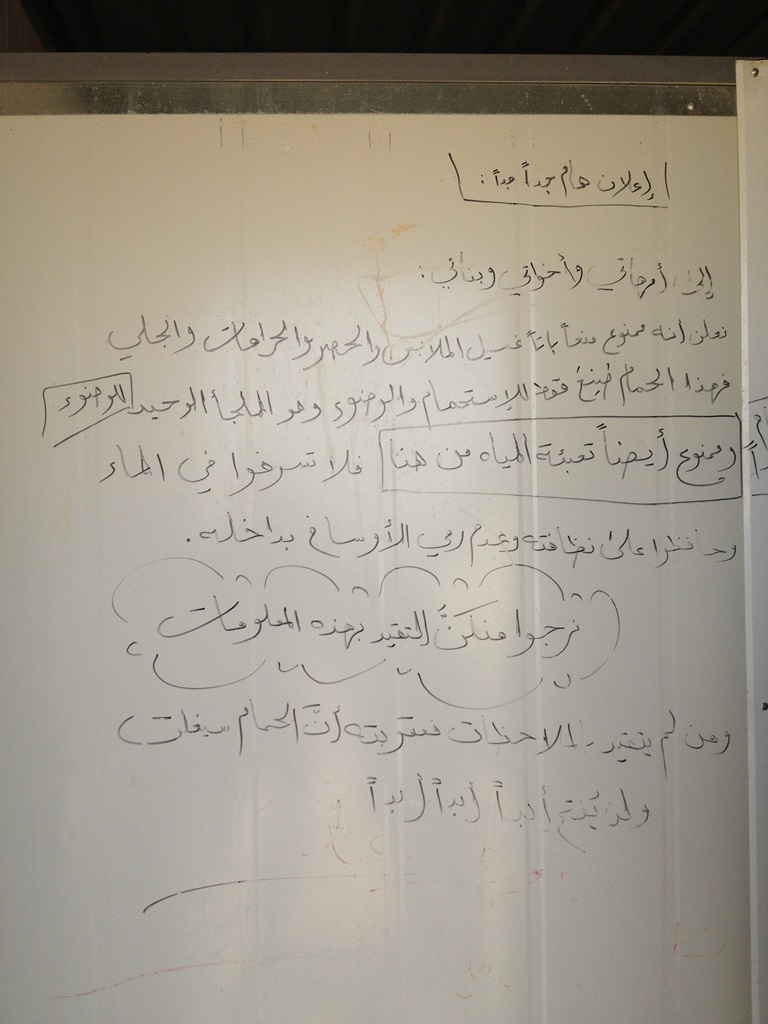 إعلان هام جداً جداً :
إلى أمهاتي وأخواتي وبناتي :
نعلن أنه ممنوع منعاً باتاً غسيل الملابس والحصر والحرامات والجلي
فهذا الحمام فقط للإستحمام والوضوء وهو الملجأ الوحيد للوضوء
وممنوع أيضاً تعبئة المياه من هنا فلا تسرفوا في الماء
وحافظوا على نظافته وعدم رمي الأوساخ بداخله .
نرجوا منكنَّ التقيد بهذه المعلومات
ومن لم يتقيد بالملاحظات فعقوبته أنَّ الحمام سيغلق
ولن يُفتح أبداً أبداً أبداً